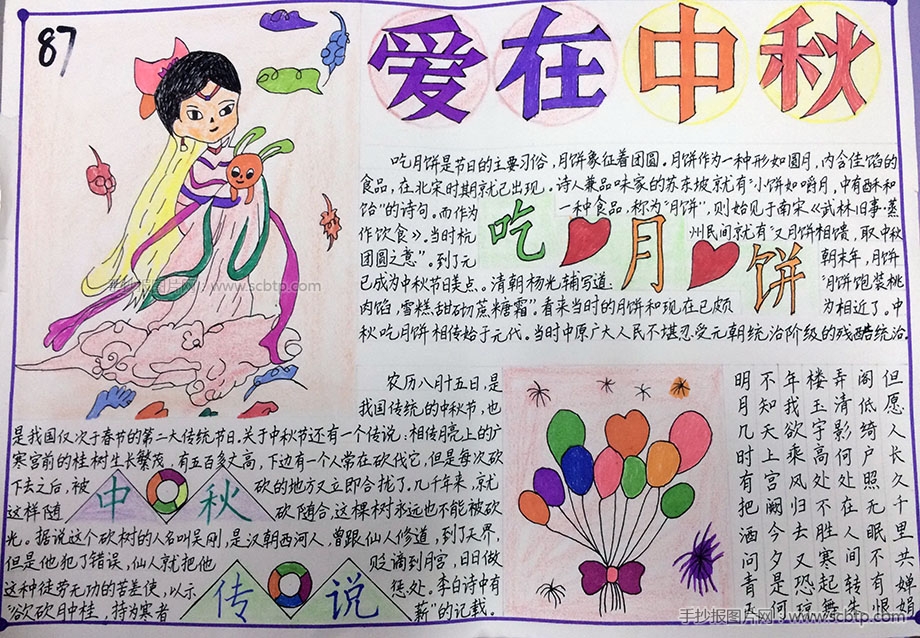 87
爱在中秋
吃月饼是节日的主要习俗,月饼象征着团圆。月饼作为一种形如圆月,内含佳馅的
食品,在北宋时期就已出现。诗人兼品味家的苏东坡就有"小饼如嚼月,中有酥和
饴"的诗句。而作为一种食品,称为"月饼",则始见于南宋《武林旧事·蒸
作饮食》。当时杭州民间就有"又月饼相馈,取中秋
团圆之意"。到了元朝末年,月饼
已成为中秋节日美点。清朝杨光辅写道:"月饼饱装桃
肉馅,雪糕甜砌蔗糖霜"。看来当时的月饼和现在已颇为相近了。中
秋吃月饼相传始于元代。当时中原广大人民不堪忍受元朝统治阶级的残酷统治。
吃月饼
农历八月十五日,是
我国传统的中秋节,也
是我国仅次于春节的第二大传统节日。关于中秋节还有一个传说:相传月亮上的广
寒宫前的桂树生长繁茂,有五百多丈高,下边有一个人常在砍伐它,但是每次砍
下去之后,被砍的地方又立即合拢了。几千年来,就
这样随砍随合,这棵树永远也不能被砍
光。据说这个砍树的人名叫吴刚,是汉朝西河人,曾跟仙人修道,到了天界,
但是他犯了错误,仙人就把他贬谪到月宫,日日做
这种徒劳无功的苦差使,以示惩处。李白诗中有
"欲砍月中桂,持为寒者薪"的记载。
中秋
传说
但愿人长久千里共婵娟
阁低绮户照无眠不有恨
弄清影何处在人间转朱
楼玉宇高处不胜寒起舞
年我欲乘风归去又恐琼
不知天上宫阙今夕是何
明月几时有把酒问青天
手抄报图片网:www.scbtp.com
手抄报图片网:www.scbtp.com